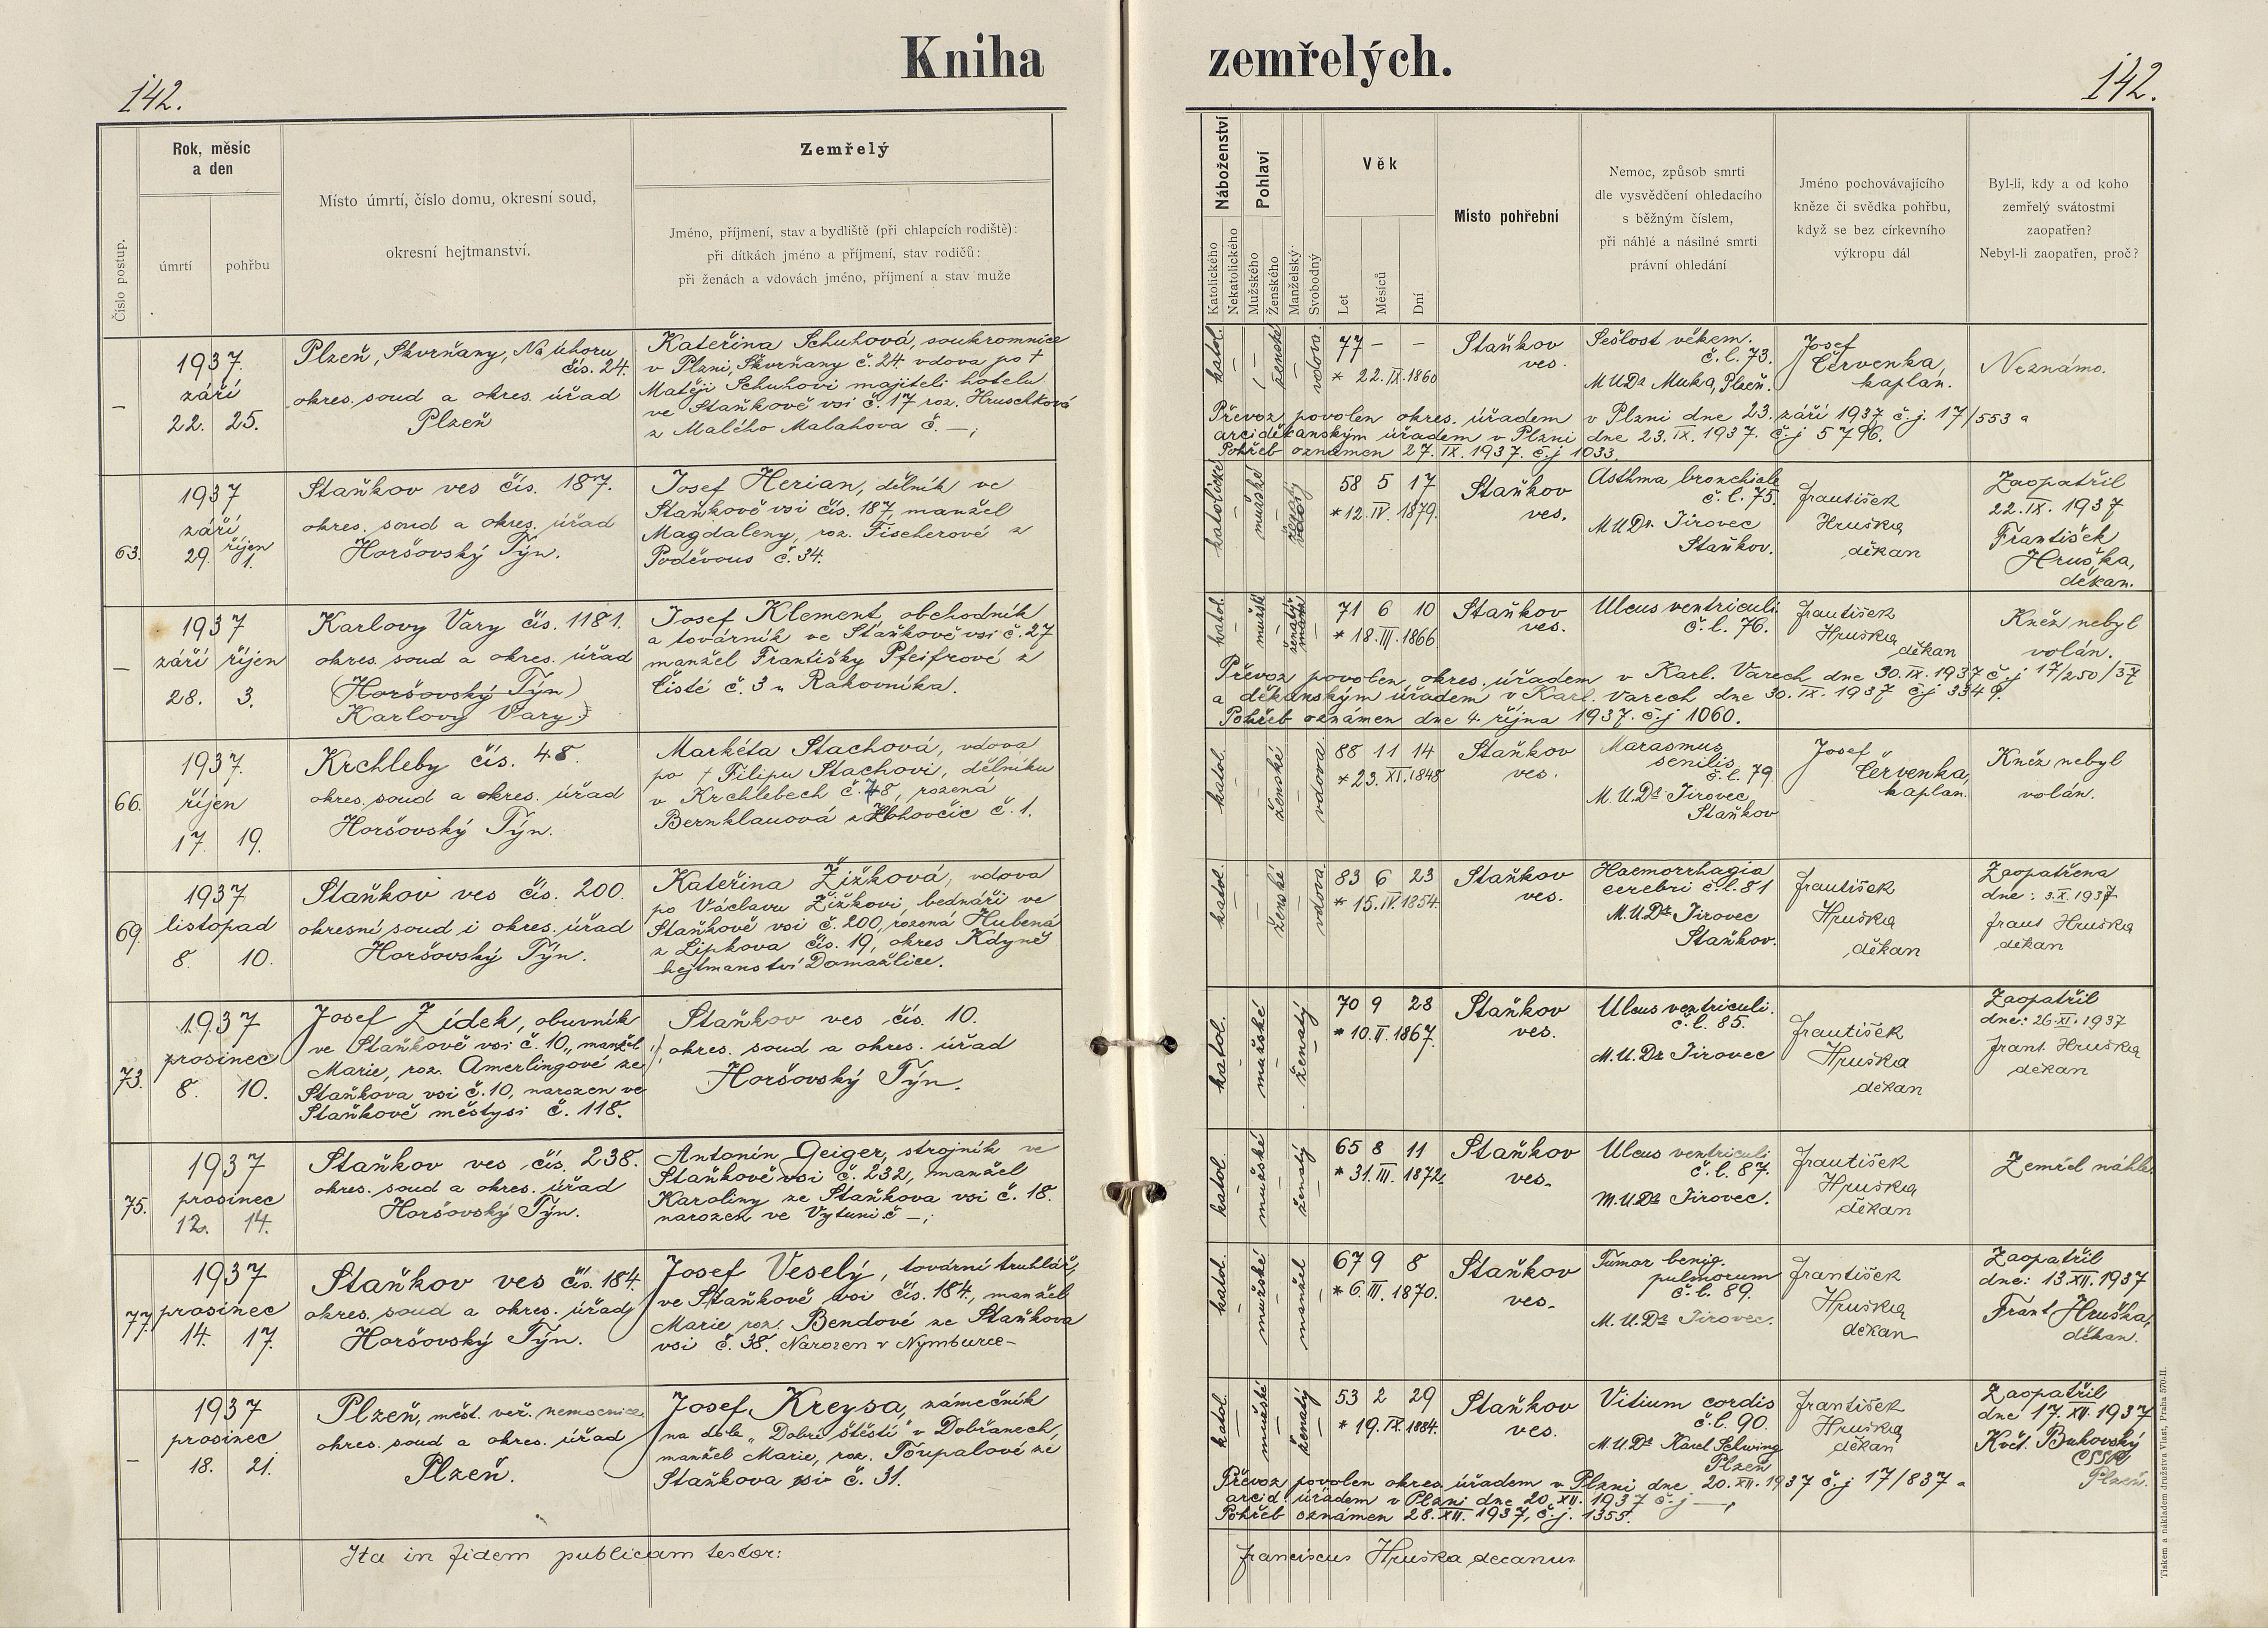 Kniha zemřelých.
142.
142.
Číslo postup.
Rok, měsíc
a den
úmrtí
pohřbu
Místo úmrtí, číslo domu, okresní soud,
okresní hejtmanství.
Zemřelý
Jméno, příjmení, stav a bydliště (při chlapcích rodiště):
při dítkách jméno a příjmení, stav rodičů:
při ženách a vdovách jméno, příjmení a stav muže
Náboženství
Katolického
Nekatolického
Pohlaví
Mužského
Ženského
Manželský
Svobodný
Věk
Let
Měsíců
Dní
Místo pohřební
Nemoc, způsob smrti
dle vysvědčení ohledacího
s běžným číslem,
při náhlé a násilné smrti
právní ohledání
Jméno pochovávajícího
kněze či svědka pohřbu,
když se bez církevního
výkropu dál
Byl-li, kdy a od koho
zemřelý svátostmi
zaopatřen?
Nebyl-li zaopatřen, proč?
—
1937.
září
22. 25.
Plzeň, Skvrňany, Na úhoru
čís. 24.
okres. soud a okres. úřad
Plzeň
Kateřina Schuhová, soukromnice
v Plzni, Skvrňany č. 24. vdova po †
Matěji Schuhovi majiteli hotelu
ve Staňkově vsi č. 17 roz. Hruschková
z Malého Malahova č. —;
katol.
ženské
vdova.
77 — —
* 22. IX. 1860
Staňkov
ves.
Sešlost věkem.
č. l. 73.
MUDr Muka, Plzeň.
Josef
Červenka,
kaplan.
Neznámo.
Převoz povolen okres. úřadem v Plzni dne 23. září 1937 č. j. 17/553 a
arciděkanským úřadem v Plzni dne 23. IX. 1937. č. j 5796.
Pohřeb oznámen 27. IX. 1937. č. j 1033.
63.
1937
září
29. říjen
1.
Staňkov ves čís. 187.
okres. soud a okres. úřad
Horšovský Týn.
Josef Herian, dělník ve
Staňkově vsi čís. 187, manžel
Magdaleny, roz. Fischerové z
Poděvous č. 34.
katolické
mužské
58 5 17
* 12. IV. 1879.
Staňkov
ves.
Asthma bronchiale
č. l. 75.
MUDr. Jirovec
Staňkov.
František
Hruška
děkan
Zaopatřil
22. IX. 1937
František
Hruška,
děkan.
—
1937
září říjen
28. 3.
Karlovy Vary čís. 1181.
okres. soud a okres. úřad
(Horšovský Týn)
Karlovy Vary)
Josef Klement, obchodník
a továrník ve Staňkově vsi č. 27
manžel Františky Pfeifrové z
Čisté č. 3 u Rakovníka.
katol.
mužské
ženatý
71 6 10
* 18. III. 1866
Staňkov
ves.
Ulcus ventriculi.
č. l. 76.
František
Hruška
děkan
Kněž nebyl
volán.
Převoz povolen okres. úřadem v Karl. Varech dne 30. IX. 1937 č. j 17/250/37
a děkanským úřadem v Karl. Varech dne 30. IX. 1937 č. j 3349.
Pohřeb oznámen dne 4. října 1937. č. j 1060.
66.
1937.
říjen
17 19.
Krchleby čís. 48.
okres. soud a okres. úřad
Horšovský Týn.
Markéta Stachová, vdova
po † Filipu Stachovi, dělníku
v Krchlebech č. 48, rozená
Bernklauová z Hohovčic č. 1.
katol.
ženské
vdova.
88 11 14
* 23. XI. 1848
Staňkov
ves.
Marasmus
senilis
č. l. 79.
M.U.Dr. Jirovec
Staňkov
Josef
Červenka,
kaplan.
Kněž nebyl
volán.
69.
1937
listopad
8. 10.
Staňkov ves čís. 200.
okresní soud i okres. úřad
Horšovský Týn.
Kateřina Žižková, vdova
po Václavu Žižkovi, bednáři ve
Staňkově vsi č. 200, rozená Hubená
z Lipkova čís. 19, okres Kdyně
hejtmanství Domažlice.
katol.
ženské
vdova.
83 6 23
* 15. IV. 1854.
Staňkov
ves.
Haemorrhagia
cerebri č. l. 81
M.U.Dr. Jirovec
Staňkov.
František
Hruška
děkan
Zaopatřena
dne: 3. X. 1937
frant Hruška
děkan
73.
1937
prosinec
8. 10.
Josef Zídek, obuvník
ve Staňkově vsi č. 10, manžel
Marie, roz. Amerlingové ze
Staňkova vsi č. 10, narozen ve
Staňkově městysi č. 118.
Staňkov ves čís. 10.
okres. soud a okres. úřad
Horšovský Týn.
katol.
mužské
ženatý
70 9 28
* 10. II. 1867.
Staňkov
ves.
Ulcus ventriculi.
č. l. 85.
M.U.Dr Jirovec
František
Hruška
děkan
Zaopatřil
dne: 26. XI. 1937
frant. Hruška
děkan
75.
1937
prosinec
12. 14.
Staňkov ves čís. 238.
okres. soud a okres. úřad
Horšovský Týn.
Antonín Geiger, strojník ve
Staňkově vsi č. 232, manžel
Karoliny ze Staňkova vsi č. 18.
narozen ve Vytuni č —;
katol.
mužské
ženatý
65 8 11
* 31. III. 1872.
Staňkov
ves.
Ulcus ventriculi
č. l. 87.
M.U.Dr Jirovec.
František
Hruška
děkan
Zemřel náhle.
77.
1937
prosinec
14. 17.
Staňkov ves čís. 184.
okres. soud a okres. úřad
Horšovský Týn.
Josef Veselý, tovární truhlář,
ve Staňkově vsi čís. 184, manžel
Marie roz. Bendové ze Staňkova
vsi č. 38. Narozen v Nymburce—
katol.
mužské
manžel
67 9 8
* 6. III. 1870.
Staňkov
ves.
Tumar benig.
pulmorum
č. l. 89.
M.U.Dr Jirovec.
František
Hruška
děkan
Zaopatřil
dne: 13. XII. 1937
Frant Hruška,
děkan.
—
1937
prosinec
18. 21.
Plzeň, měst. veř. nemocnice,
okres. soud a okres. úřad
Plzeň.
Josef Kreysa, zámečník
na dole „Dobré štěstí" v Dobřanech,
manžel Marie, roz. Toupalové ze
Staňkova vsi č. 31.
katol.
mužské
ženatý
53 2 29
* 19. IX. 1884.
Staňkov
ves.
Vitium cordis
č. l. 90.
M.U.Dr Karel Schwing
Plzeň
František
Hruška
děkan
Zaopatřil
dne 17. XII. 1937
Květ. Bukovský
CSSR
Plzeň.
Převoz povolen okres. úřadem v Plzni dne 20. XII. 1937 č. j 17/837 a
arcid. úřadem v Plzni dne 20. XII. 1937 č. j —,
Pohřeb oznámen 28. XII. 1937, č. j. 1355.
Ita in fidem publicam testor:
franciscus Hruška decanus
Tiskem a nákladem družstva Vlast, Praha 570-II.